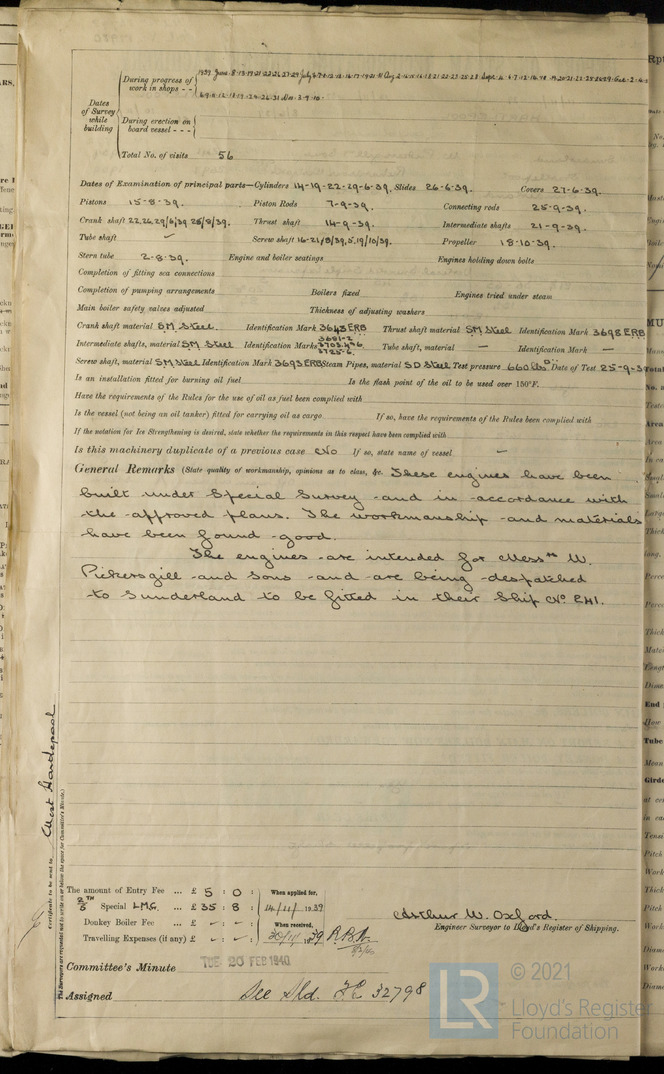 During progress of work in shops - -
Dates of Survey while building
During erection on board vessel - - -
Total No. of visits 56
Dates of Examination of principal parts—Cylinders 14-19-22-29-6-39. Slides 26-6-39. Covers 27-6-39.
Pistons 15-8-39. Piston Rods 7-9-39. Connecting rods 25-9-39.
Crank shaft 22,26,29/6/39 25/8/39. Thrust shaft 14-9-39. Intermediate shafts 21-9-39.
Tube shaft — Screw shaft 16-21/8/39, 5,19/10/39. Propeller 18-10-39.
Stern tube 2-8-39. Engine and boiler seatings Engines holding down bolts
Completion of fitting sea connections
Completion of pumping arrangements Boilers fixed Engines tried under steam
Main boiler safety valves adjusted Thickness of adjusting washers
Crank shaft material SM Steel. Identification Mark 3643 ERB Thrust shaft material SM Steel Identification Mark 3698 ERB
Intermediate shafts, material SM Steel Identification Marks Tube shaft, material — Identification Mark —
Screw shaft, material SM Steel Identification Mark 3693 ERB Steam Pipes, material SD Steel Test pressure 660 lbs □" Date of Test 25-9-3
Is an installation fitted for burning oil fuel Is the flash point of the oil to be used over 150°F.
Have the requirements of the Rules for the use of oil as fuel been complied with
Is the vessel (not being an oil tanker) fitted for carrying oil as cargo If so, have the requirements of the Rules been complied with
If the notation for Ice Strengthening is desired, state whether the requirements in this respect have been complied with
Is this machinery duplicate of a previous case No If so, state name of vessel —
General Remarks (State quality of workmanship, opinions as to class, &c. These engines have been
built under Special Survey and in accordance with
the approved plans. The workmanship and materials
have been found good.
The engines are intended for Messrs W.
Pickersgill and Sons and are being despatched
to Sunderland to be fitted in their Ship No. 241.
West Hartlepool
Certificate to be sent to
(The Surveyors are requested not to write on or below the space for Committee's Minute.)
The amount of Entry Fee ... £ 5 : 0 : When applied for,
Special LMC. ... £ 35 : 8 : 14/11/1939
Donkey Boiler Fee ... £ - : - : When received,
Travelling Expenses (if any) £ - : - : 30/11/1939
Arthur W. Oxford.
Engineer Surveyor to Lloyd's Register of Shipping.
Committee's Minute TUE 20 FEB 1940
Assigned See Sld. FE 32798
LR © 2021
Lloyd's Register
Foundation